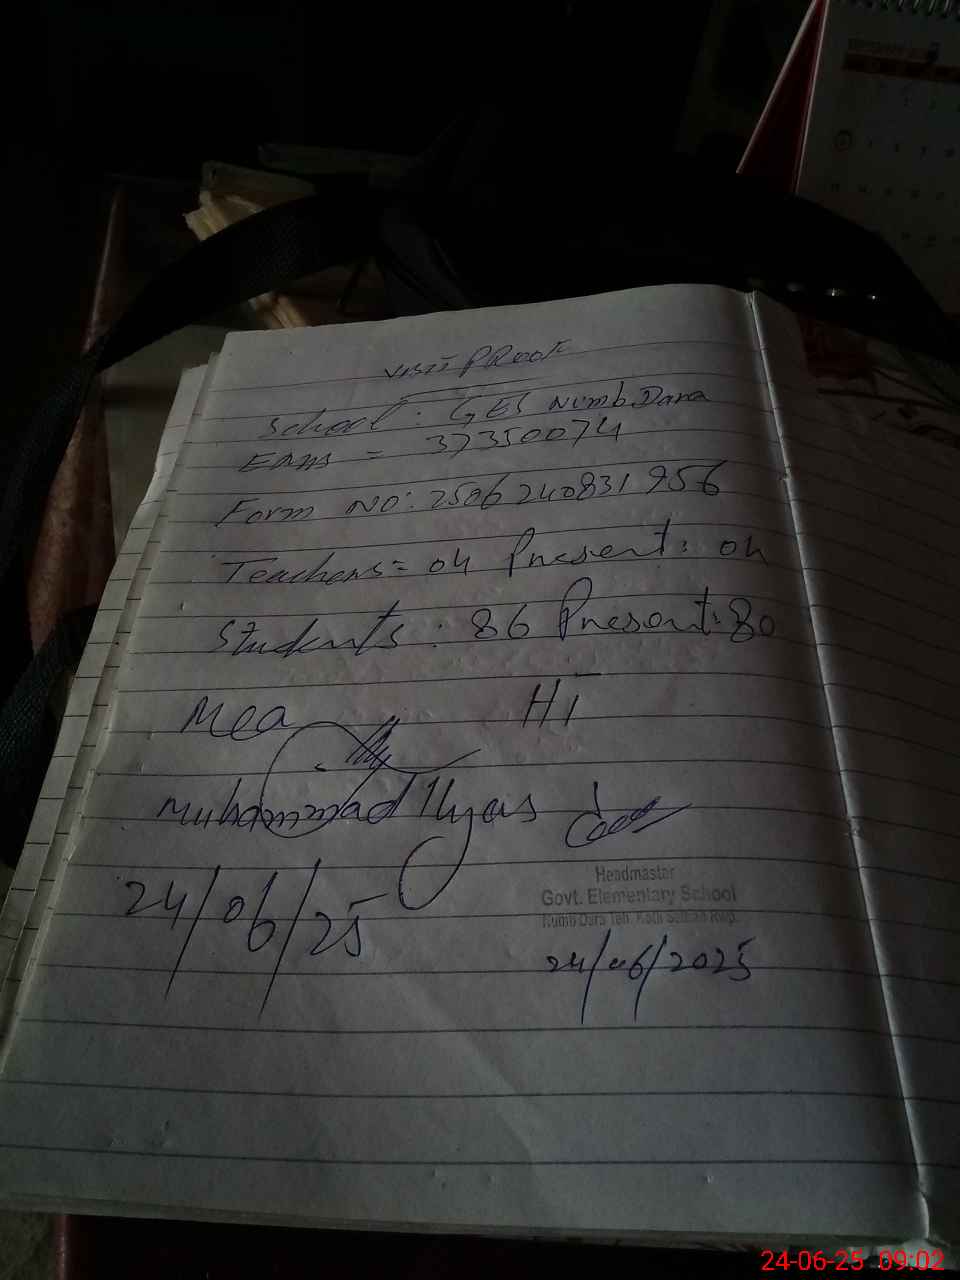 VISIT PROOF
School: GES Numb Dara
EMIS = 37350074
Form NO: 2506240831956
Teachers = 04 Present: 04
Students: 86 Present: 80
Mea HT
Muhammad Ilyas
Headmaster
Govt. Elementary School
Numb Dara Teh. Kotli Sattian Rwp.
24/06/25
24/06/2025
24-06-25 09:02